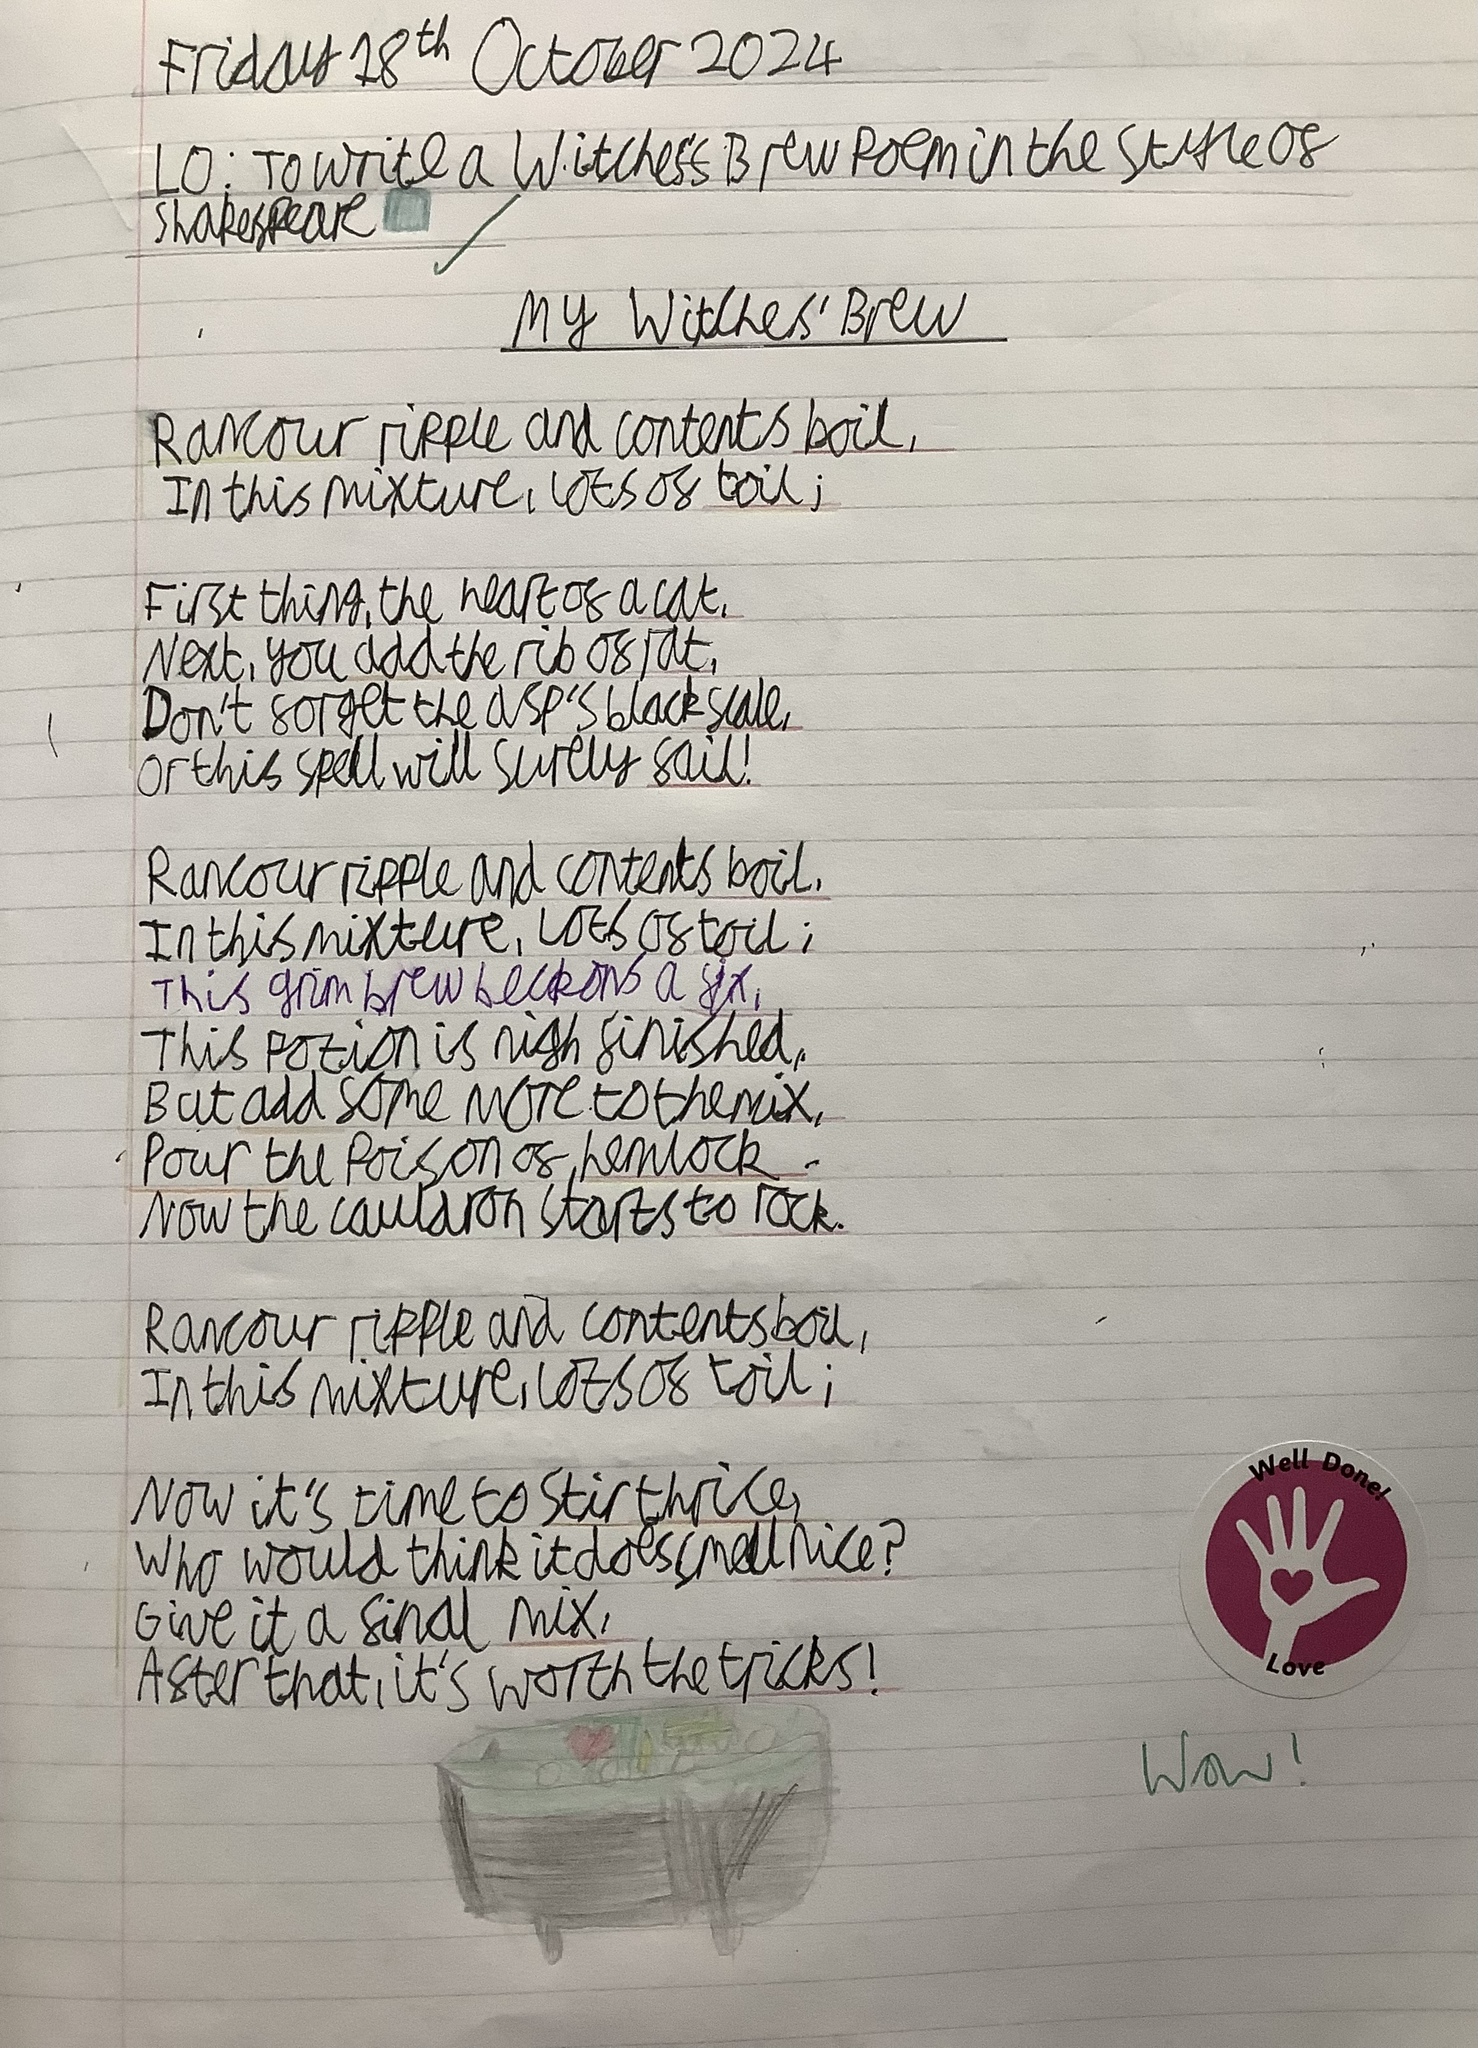 Friday 18th October 2024
LO: To write a Witches's Brew Poem in the style of
Shakespeare
My Witches' Brew
Rancour ripple and contents boil,
In this mixture, lots of toil;
First thing, the heart of a cat,
Next, you add the rib of rat,
Don't forget the asp's black scale,
Or this spell will surely fail!
Rancour ripple and contents boil,
In this mixture, lots of toil;
This grim brew beckons a fix,
This potion is nigh finished,
But add some more to the mix,
Pour the poison of hemlock
Now the cauldron starts to rock.
Rancour ripple and contents boil,
In this mixture, lots of toil;
Now it's time to stir thrice,
Who would think it does smell nice?
Give it a final mix,
After that, it's worth the tricks!
Well Done!
Love
Wow!